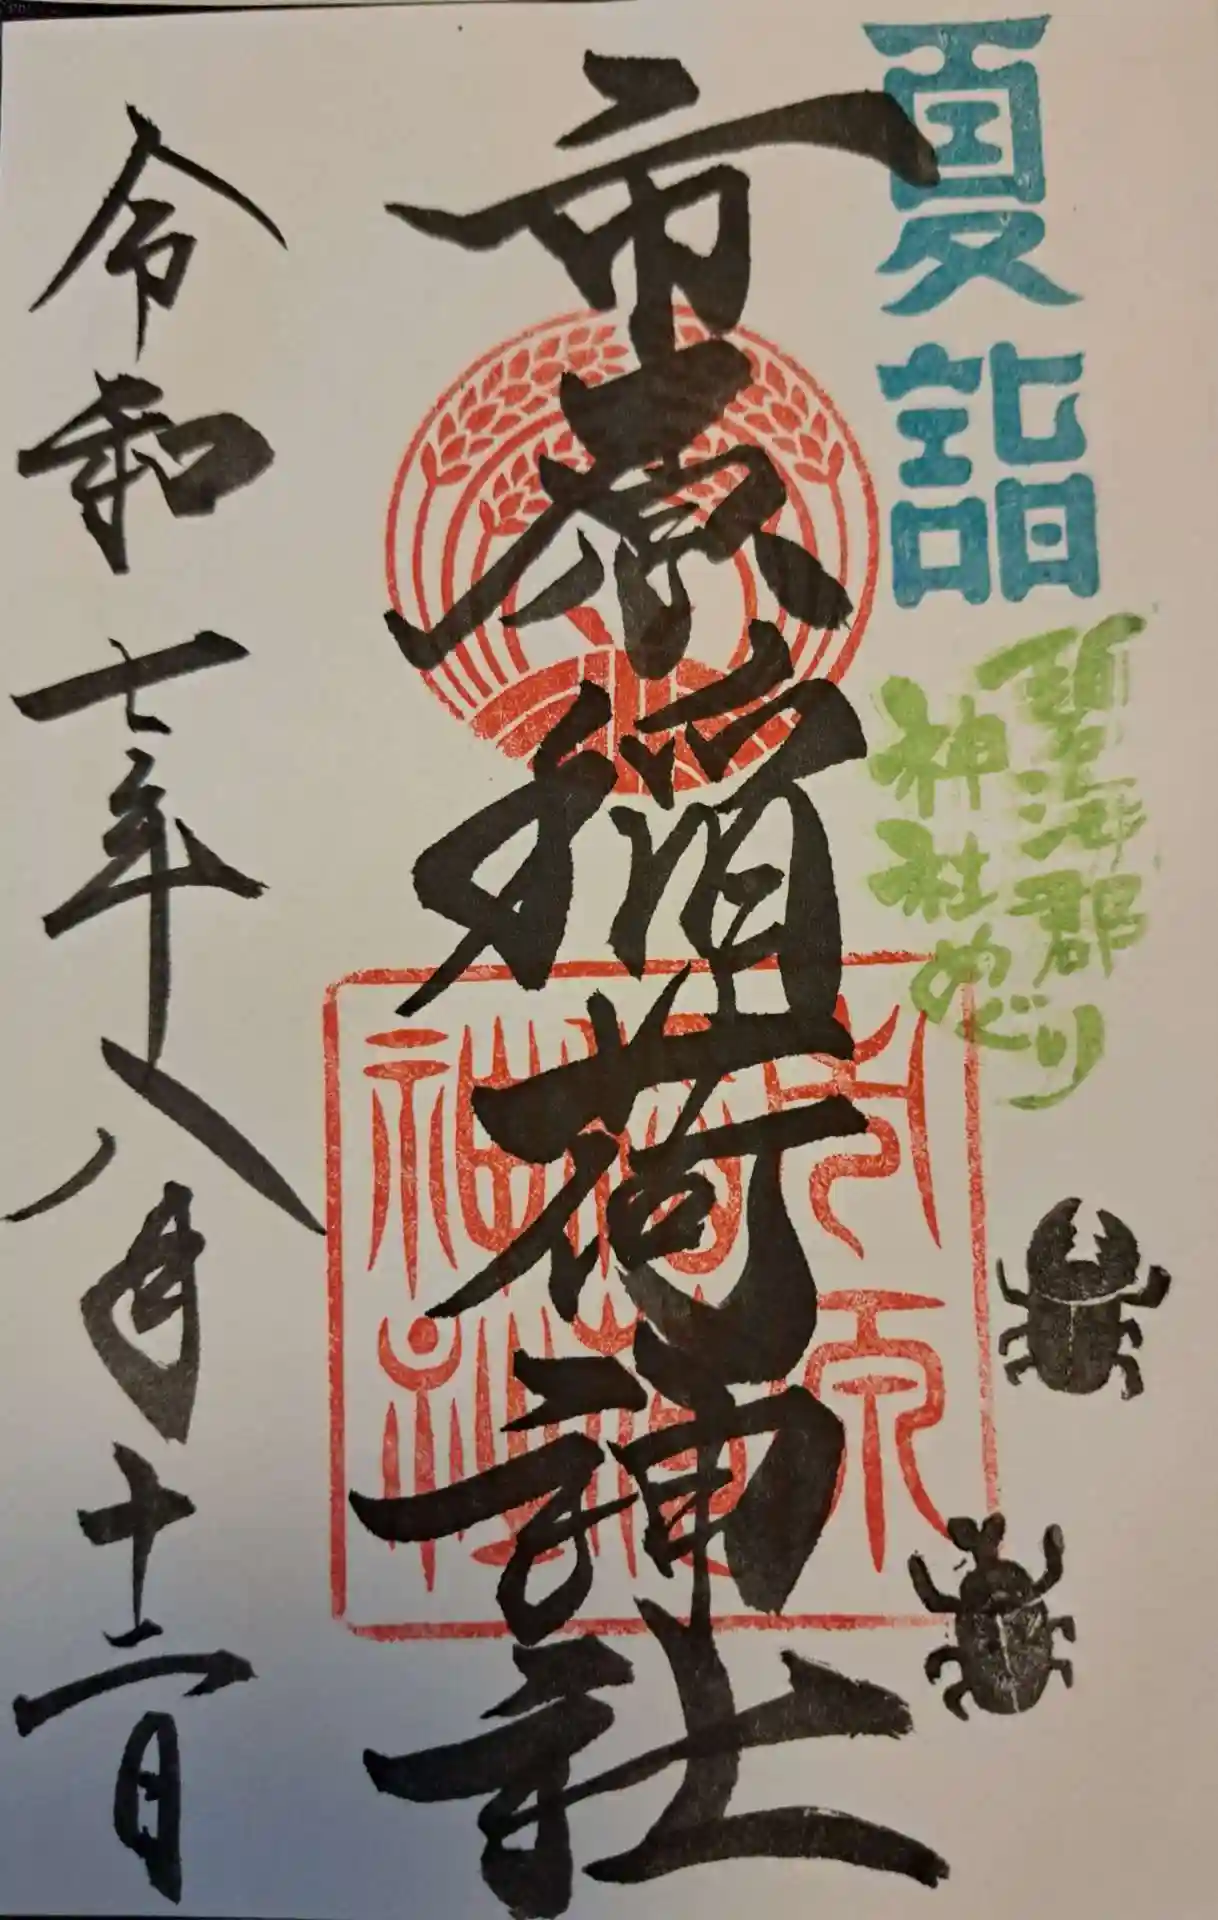 夏詣
碧海郡
神社めぐり
市原稲荷神社
令和七年八月十二日